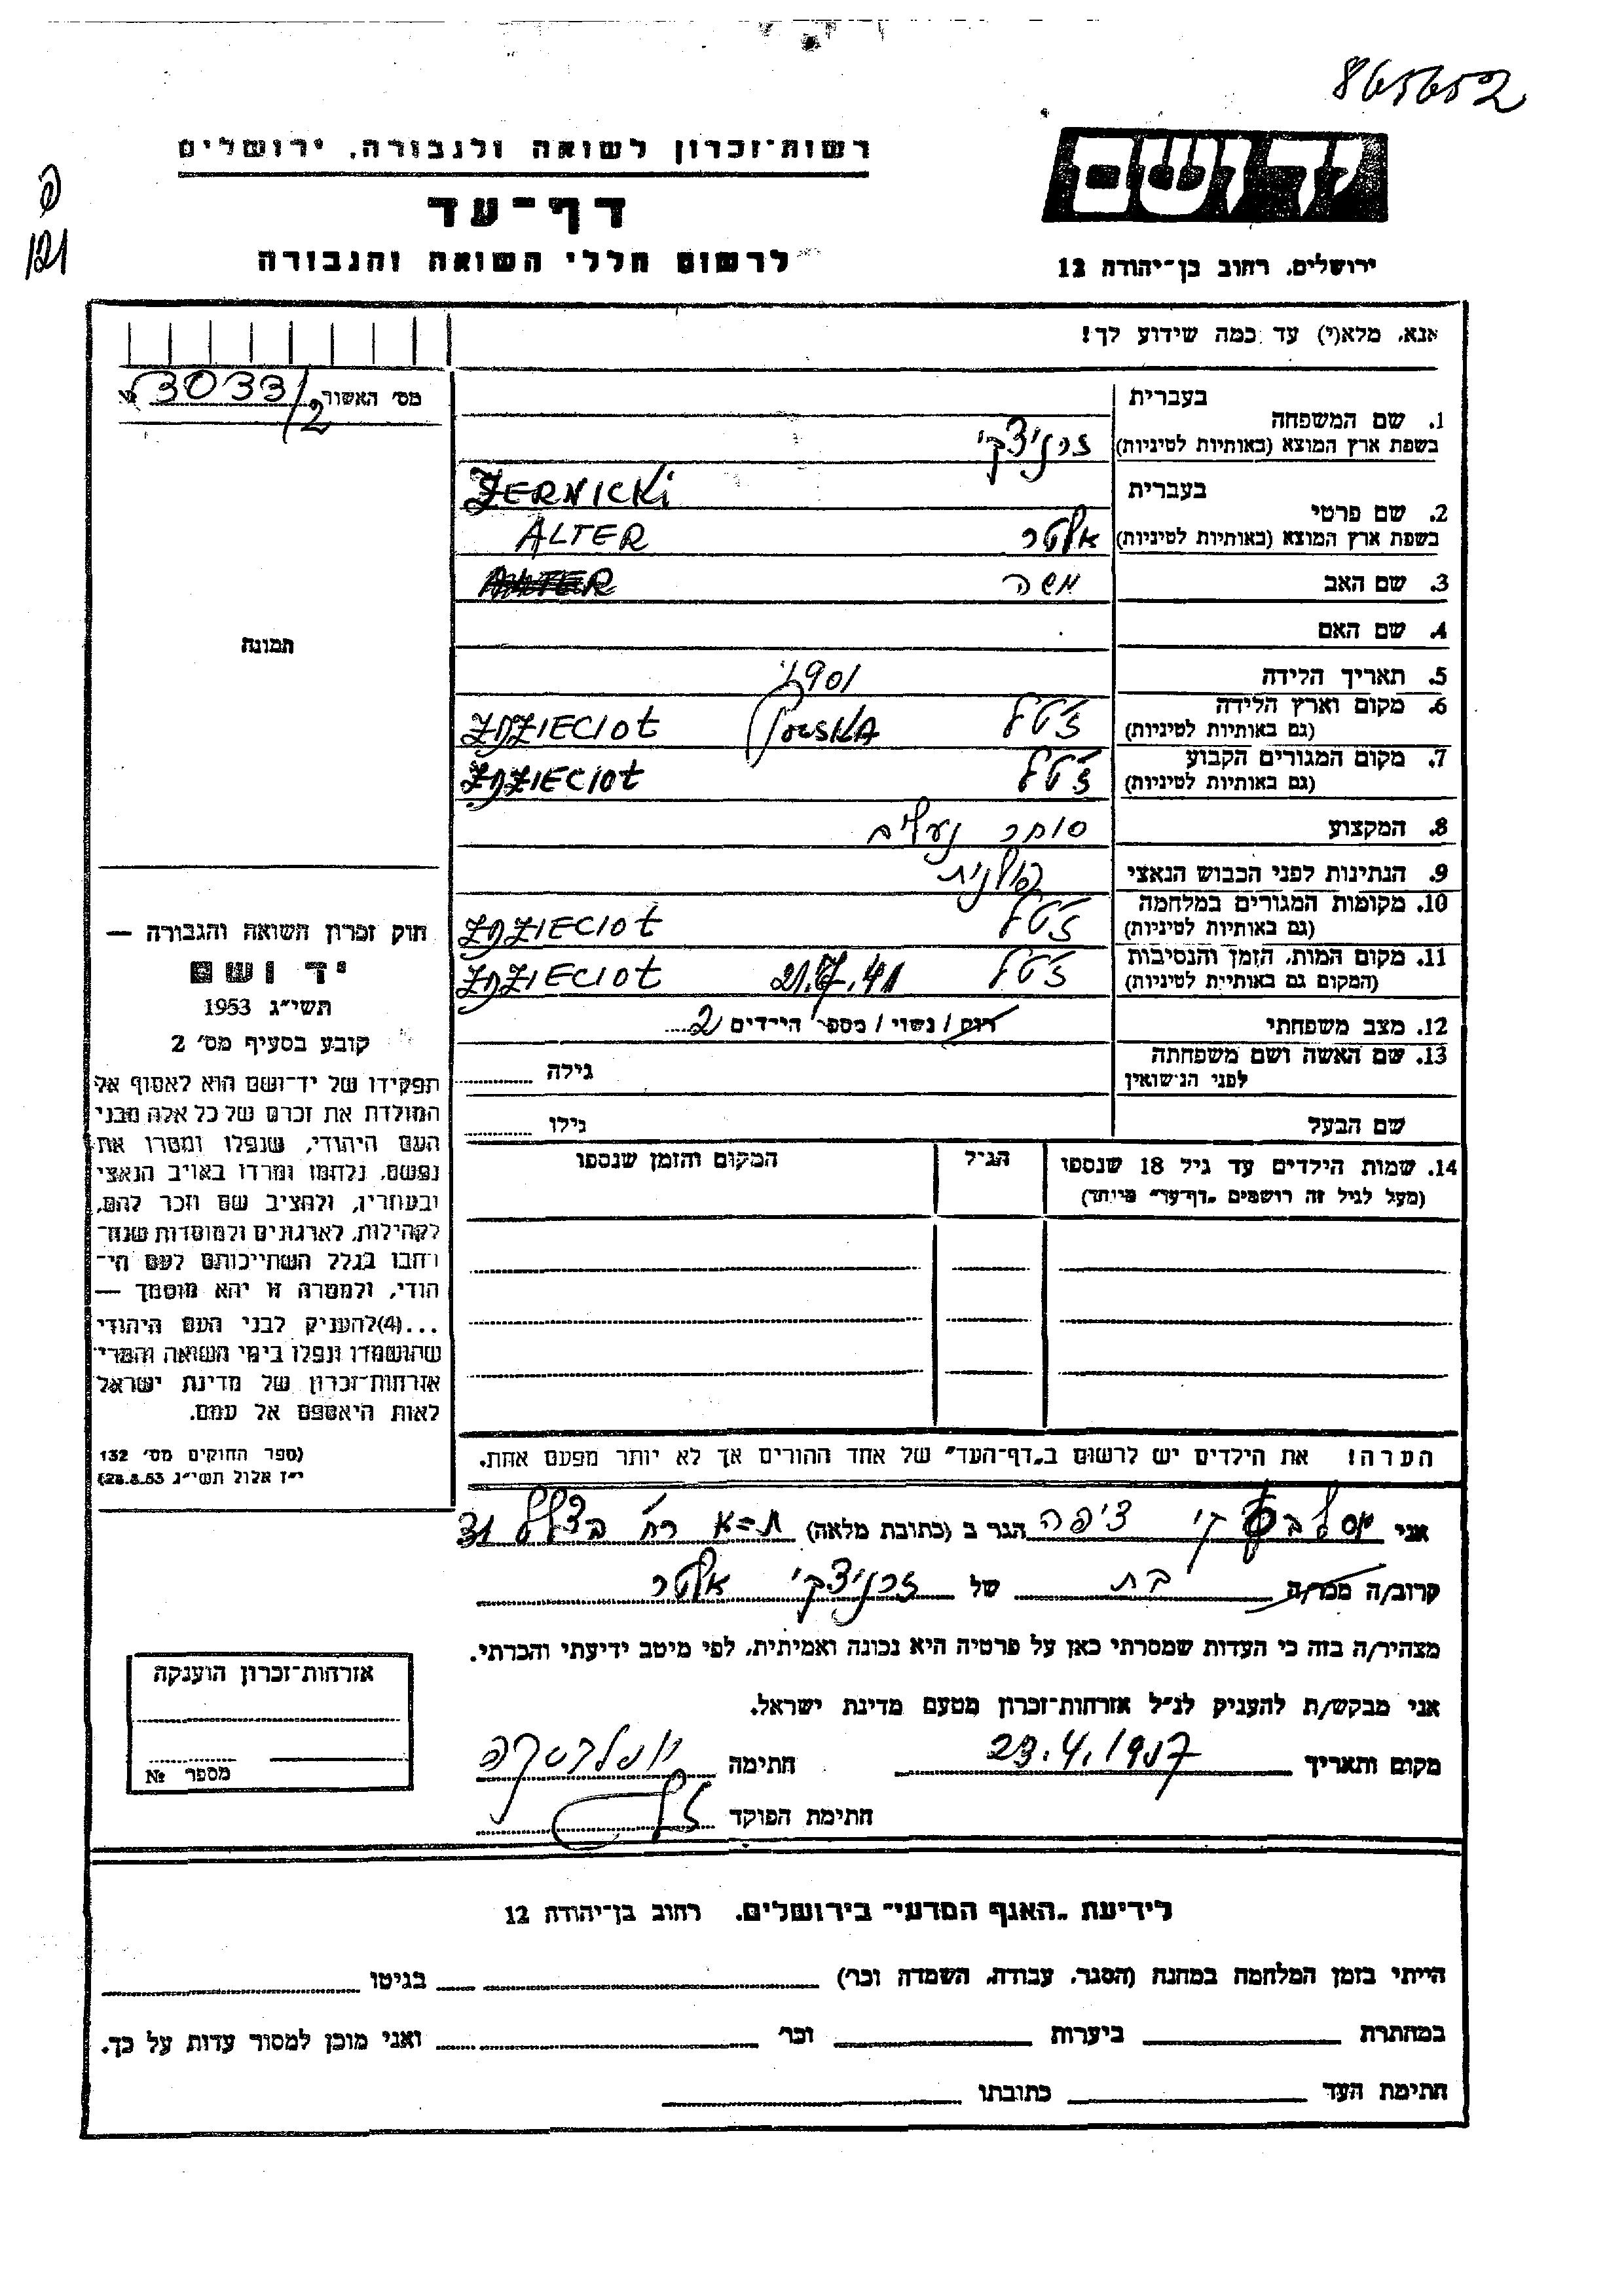 865652
רשות־זכרון לשואה ולגבורה, ירושלים
יד ושם
דף־עד
לרשום חללי השואה והגבורה
ירושלים, רחוב בן־יהודה 12
121
אנא, מלא(י) עד כמה שידוע לך!
מס׳ האשור 3033/2
בעברית
1. שם המשפחה
בשפת ארץ המוצא (באותיות לטיניות) זרניצקי
ZERNICKI
בעברית
2. שם פרטי
בשפת ארץ המוצא (באותיות לטיניות) אלטר ALTER
3. שם האב משה ALTER
תמונה
4. שם האם
5. תאריך הלידה 1901
6. מקום וארץ הלידה
(גם באותיות לטיניות) ז׳טל POLSKA ZDZIECIOŁ
7. מקום המגורים הקבוע
(גם באותיות לטיניות) ז׳טל ZDZIECIOŁ
8. המקצוע סוחר נעלים
9. הנתינות לפני הכבוש הנאצי פולנית
10. מקומות המגורים במלחמה
(גם באותיות לטיניות) ז׳טל ZDZIECIOŁ
11. מקום המות, הזמן והנסיבות
(המקום גם באותיות לטיניות) ז׳טל 21.7.41 ZDZIECIOŁ
12. מצב משפחתי רווק / נשוי / מספר הילדים 2
13. שם האשה ושם משפחתה
לפני הנישואין גילה
שם הבעל גילו
14. שמות הילדים עד גיל 18 שנספו הגיל המקום והזמן שנספו
(מעל לגיל זה רושמים „דף־עד״ מיוחד)
חוק זכרון השואה והגבורה —
יד ושם
תשי״ג 1953
קובע בסעיף מס׳ 2
תפקידו של יד־ושם הוא לאסוף אל
המולדת את זכרם של כל אלה מבני
העם היהודי, שנפלו ומסרו את
נפשם, נלחמו ומרדו באויב הנאצי
ובעוזריו, ולהציב שם וזכר להם,
לקהילות, לארגונים ולמוסדות שנח־
רבו בגלל השתייכותם לעם הי־
הודי, ולמטרה זו יהא מוסמך —
...(4)להעניק לבני העם היהודי
שהושמדו ונפלו בימי השואה והמרי־
אזרחות־זכרון של מדינת ישראל
לאות היאספם אל עמם.
(ספר החוקים מס׳ 132
י״ז אלול תשי״ג 28.8.53)
הערה! את הילדים יש לרשום ב„דף־העד״ של אחד ההורים אך לא יותר מפעם אחת.
אני ציפה הגר ב (כתובת מלאה) ת=א רח׳ בצלאל 31
קרוב/ה מכר/ה בת של זרניצקי אלטר
מצהיר/ה בזה כי העדות שמסרתי כאן על פרטיה היא נכונה ואמיתית, לפי מיטב ידיעתי והכרתי.
אני מבקש/ת להעניק לנ״ל אזרחות־זכרון מטעם מדינת ישראל.
מקום ותאריך 23.4.1957 חתימה
חתימת הפוקד
אזרחות־זכרון הוענקה
מספר №
לידיעת „האגף המדעי״ בירושלים. רחוב בן־יהודה 12
הייתי בזמן המלחמה במחנה (הסגר, עבודת, השמדה וכו׳) בגיטו
במחתרת ביערות וכו׳ ואני מוכן למסור עדות על כך.
חתימת העד כתובתו